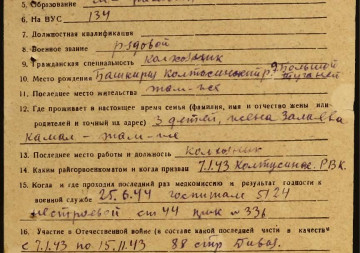 5. Образование
6. На ВУС 134
7. Должностная квалификация
8. Военное звание рядовой
9. Гражданская специальность колхозник
10. Место рождения Башкирия Колтосинский р. Большой
11. Последнее место жительства там-же
12. Где проживает в настоящее время семья (фамилия, имя и отчество жены или
родителей и точный их адрес) 3 детей, жена Залаева
Камал - там-же
13. Последнее место работы и должность колхозник
14. Каким райгорвоенкоматом и когда призван 7.1.43 Колтусинс. РВК.
15. Когда и где проходил последний раз медкомиссию и результат годности к
военной службе 25.6.44 госпиталь 5124
нестроевой ст 44 прик № 336
16. Участие в Отечественной войне (в составе какой последней части в качестве
с 7.1.43 по 15.11.43 88 стр Дивиз.